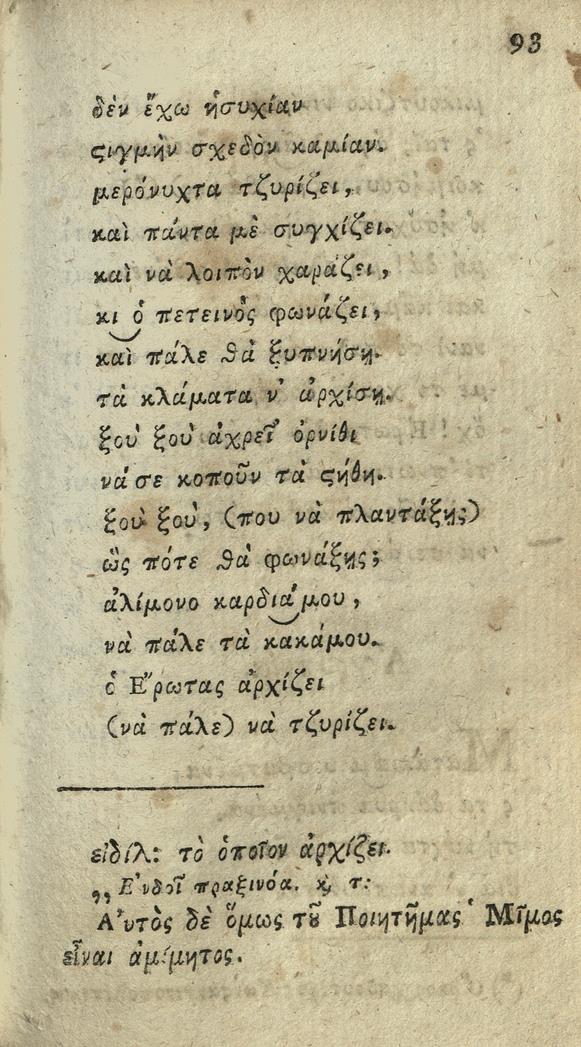 93
δὲν ἔχω ἡσυχίαν
ϛιγμὴν σχεδὸν καμίαν.
μερόνυχτα τζυρίζει,
καὶ πάντα μὲ συγχίζει.
καὶ νὰ λοιπὸν χαράζει,
κι ὁ πετεινὸς φωνάζει,
καὶ πάλε θὰ ξυπνήσῃ.
τὰ κλάματα ν' ἀρχίσῃ.
ξοὺ ξοὺ ἀχρεῖ ὀρνίθι
νά σε κοποῦν τὰ ϛήθη.
ξοὺ ξοὺ, (που νὰ πλαντάξῃς)
ὣς πότε θὰ φωνάξῃς;
ἀλίμονο καρδιά μου,
νὰ πάλε τὰ κακάμου.
ὁ Ἔρωτας ἀρχίζει
(νὰ πάλε) νὰ τζυρίζει.
εἰδίλ: τὸ ὁποῖον ἀρχίζει.
„ Ἐνδοῖ πραξινόα. ϗ τ:
Αὐτὸς δὲ ὅμως τȣ͂ Ποιητῆμας ὁ Μῖμος
εἶναι ἀμίμητος.